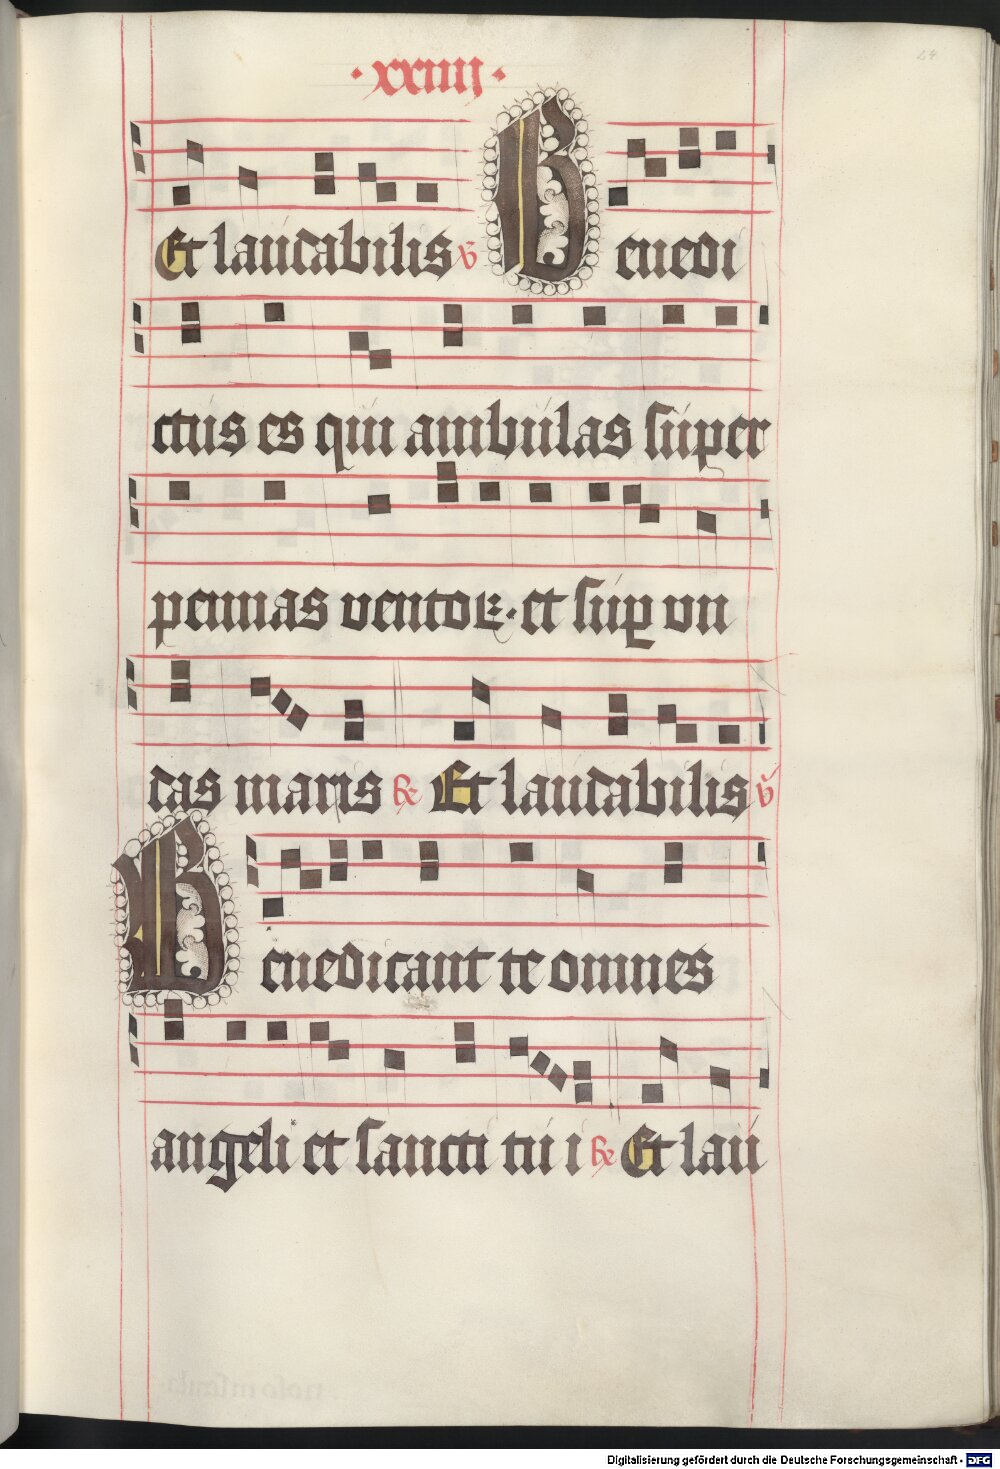 ·xxiiij·
24
Et laudabilis ℣ Benedi
ctus es qui ambulas super
pennas ventoꝝ·et suꝑ vn
das maris ℟ Et laudabilis ℣
Benedicant te omnes
angeli et sancti tui ℟ Et lau
Digitalisierung gefördert durch die Deutsche Forschungsgemeinschaft - DFG